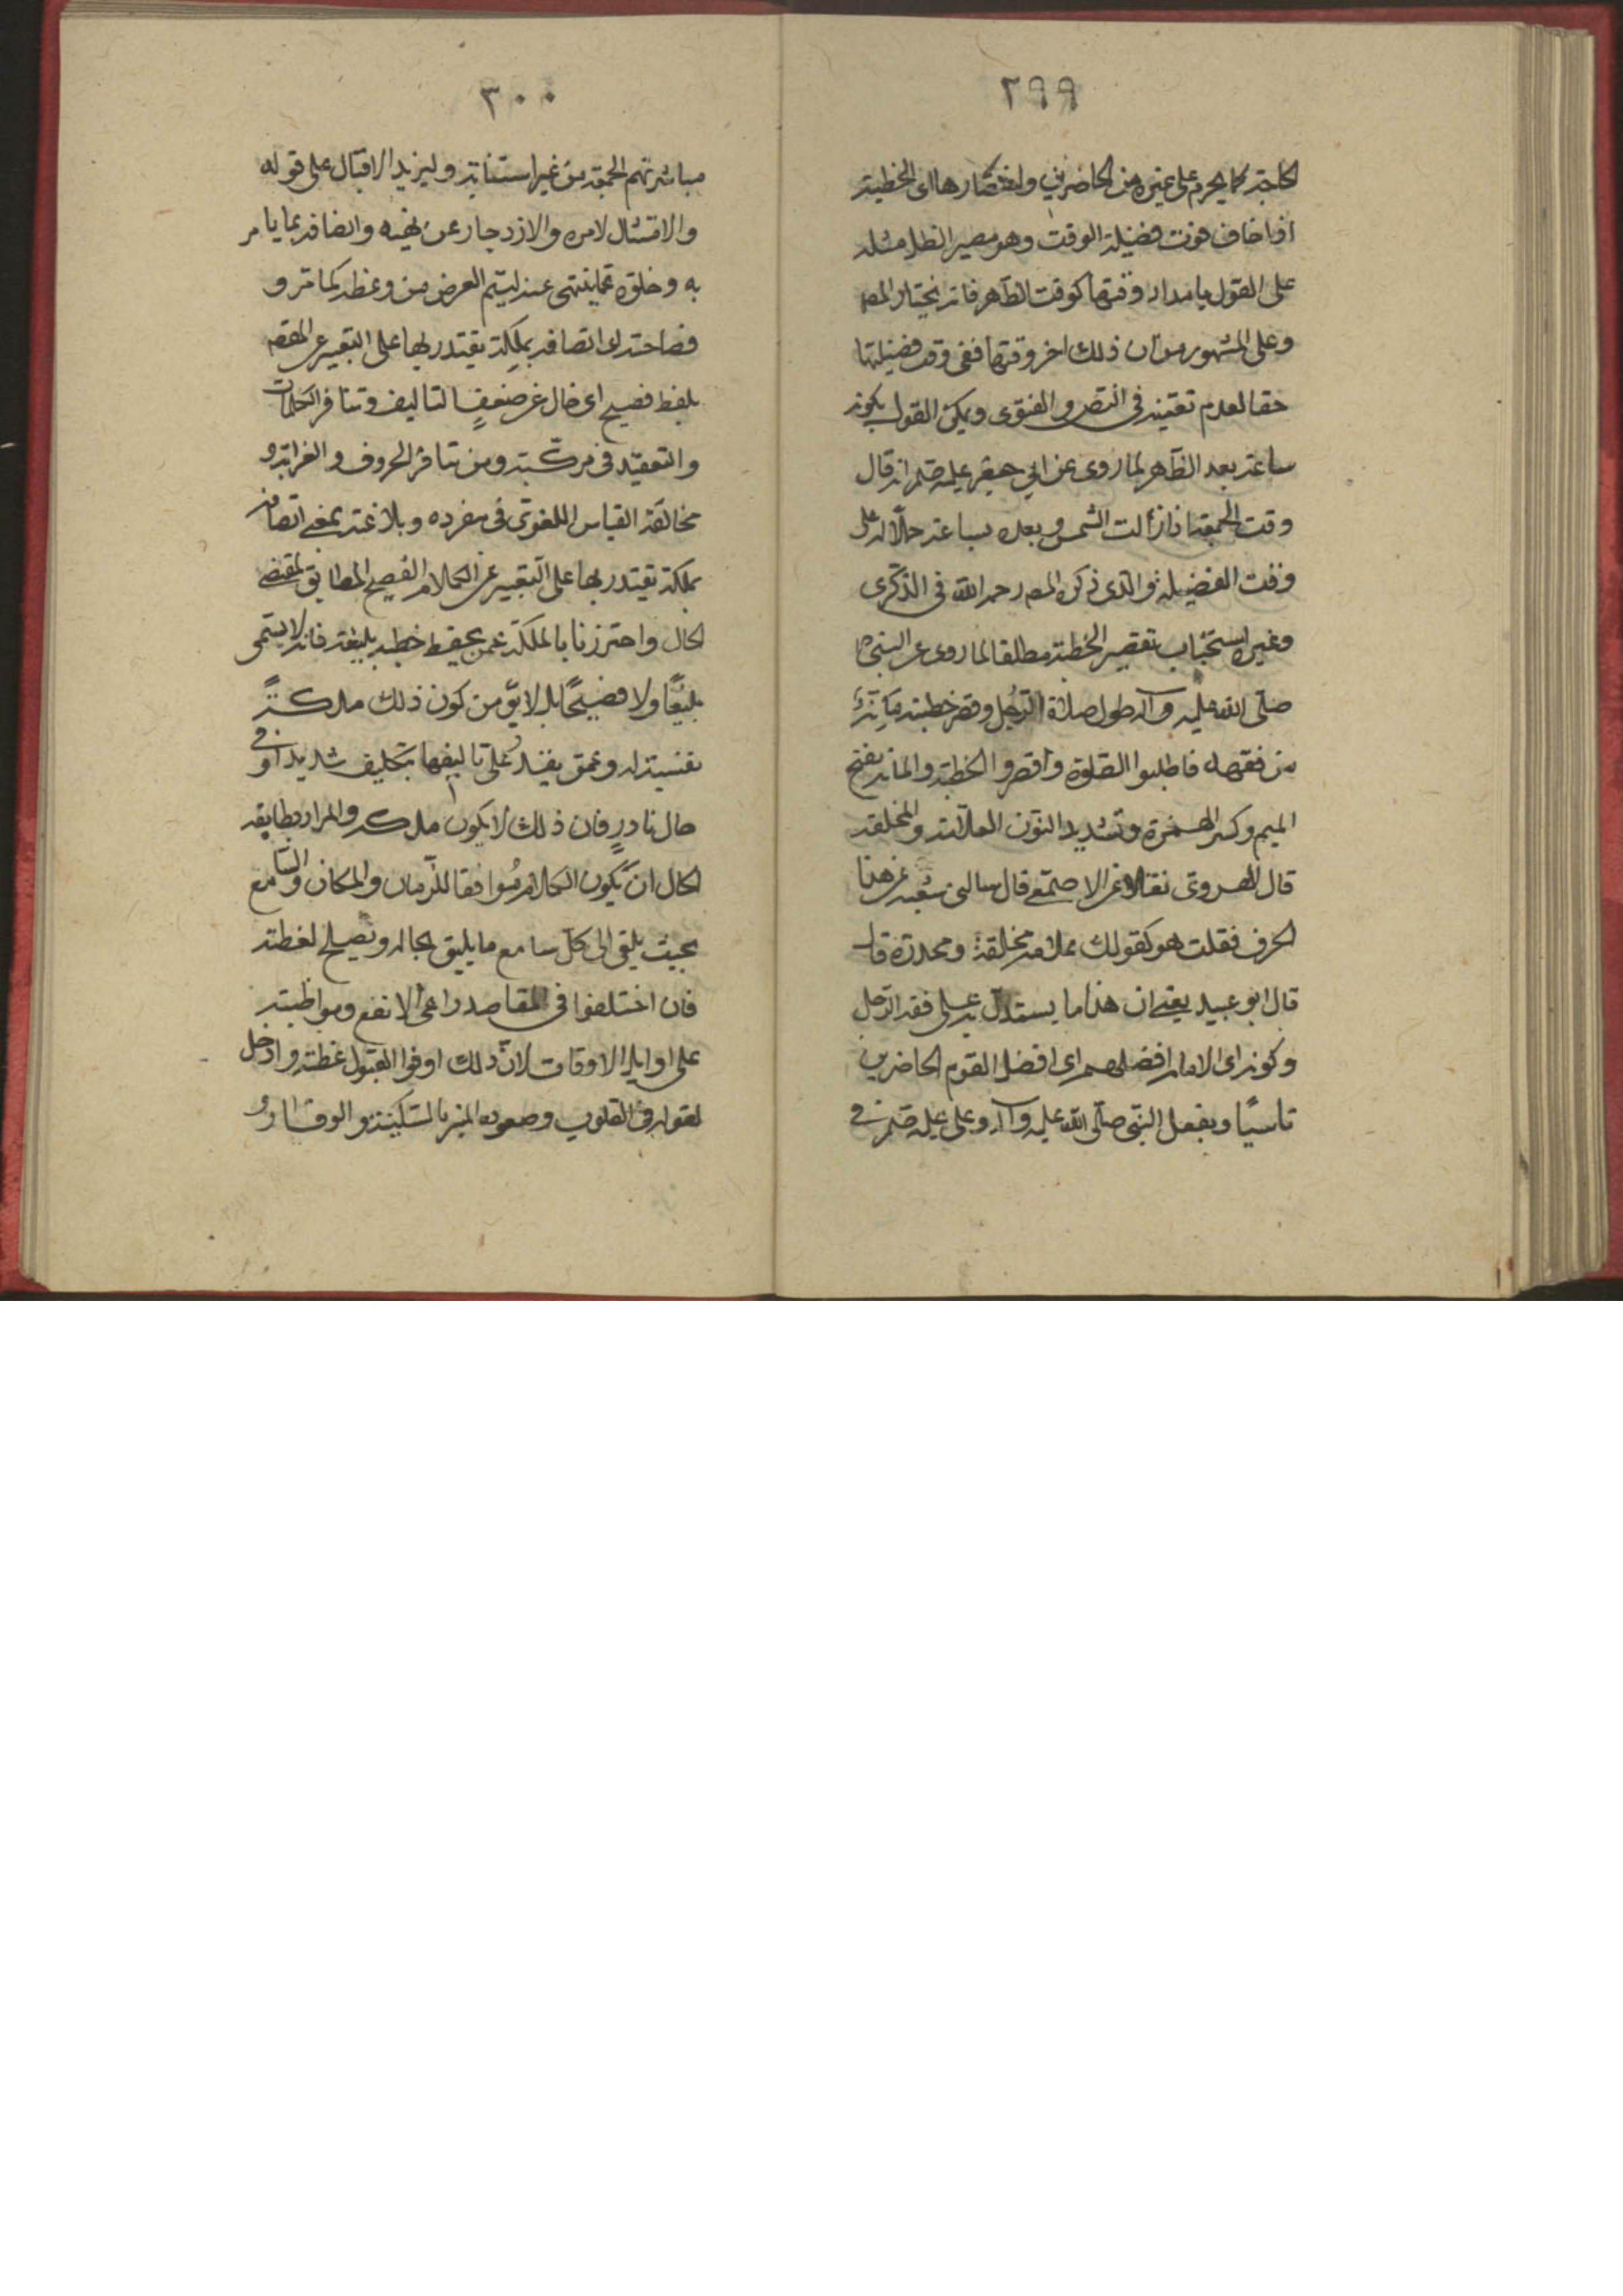 ٢٩٩
الحاجة كما يحرم على غيره من الحاضرين واختصارها اى الخطبة
اذا خاف فوت فضيلة الوقت وهو مصير الظل مثله
على القول بامداد وقتها كوقت الظهر فانه يختار المصـ
وعلى المشهور من ان ذلك اخر وقتها ففى وقت فضيلتها
خفا لعدم تعيينه فى النص والفتوى ويمكن القول بكونه
ساعة بعد الظهر لما روى عن ابي جعفر عليه انه قال
وقت الجمعة اذا زالت الشمس وبعده بساعة حملا له على
وقت الفضيلة والذى ذكره المصـ رحمه الله فى الذكرى
وغيره استحباب تقصير الخطبة مطلقا لما روى عن النبى
صلى الله عليه وآله طول صلاة الرجل وقصر خطبته مئنة
من فقهه فاطيلوا الصلوة واقصروا الخطبة والمئنة بفتح
الميم وكسر الهمزة وتشديد النون العلامة والمخلقة
قال الهروى نقلا عن الاصمعى قال سالنى شعبه عن هذا
الحرف فقلت هو كقولك علامة مخلقة ومجدرة قال
قال ابو عبيد يعنى ان هذا ما يستدل به على فقه الرجل
وكونه اى الامام افضلهم اى افضل القوم الحاضرين
تاسيًا وبفعل النبى صلى الله عليه وآله وعلى عليه فى
٣٠٠
مباشرتهم الجمعة من غير استنابة وليزيد الاقبال على قوله
والامتثال لامره والازدجار عن نهيه واتصافه بما يامر
به وخلوه عما ينهى عنه ليتم الغرض من وعظه كما مر و
فصاحته اى اتصافه بملكة يقتدر بها على التعبير عن المقصـ
بلفظ فصيح اى خال عن ضعف التاليف وتنافر الكلمات
والتعقيد فى مركبته ومن تنافر الحروف والغرابة و
مخالفة القياس اللغوى فى مفرده وبلاغته بمعنى اتصافه
بملكة يقتدر بها على التعبير عن الكلام الفصيح المطابق لمقتضى
الحال واحترزنا بالملكة عمن يحفظ خطبه بليغة فانه لا يسمى
بليغًا ولا فصيحًا بل لا بد من كون ذلك ملكةً
نفسية له وعمن يقدر على تاليفها بتكليف شديد او فى
حال نادر فان ذلك لا يكون ملكه والمراد بمطابقه
الحال ان يكون الكلام موافقا للزمان والمكان والسامع
بحيث يلقى الى كل سامع ما يليق بحاله ويصلح لعظته
فان اختلفوا فى المقاصد راعى الانفع ومواظبته
على اوايل الاوقات لان ذلك اوفر القبول عظته وادخل
لقوله فى القلوب وصعوده المنبر بالسكينة والوقار و